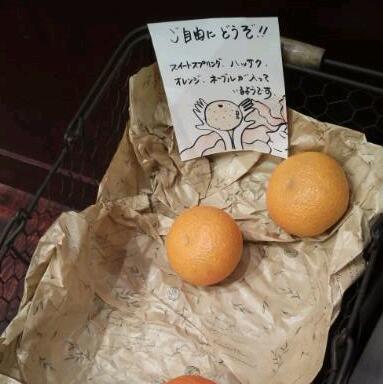 ご自由にどうぞ!!
スイートスプリング、ハッサク、
オレンジ、ネーブルが入って
いるようです